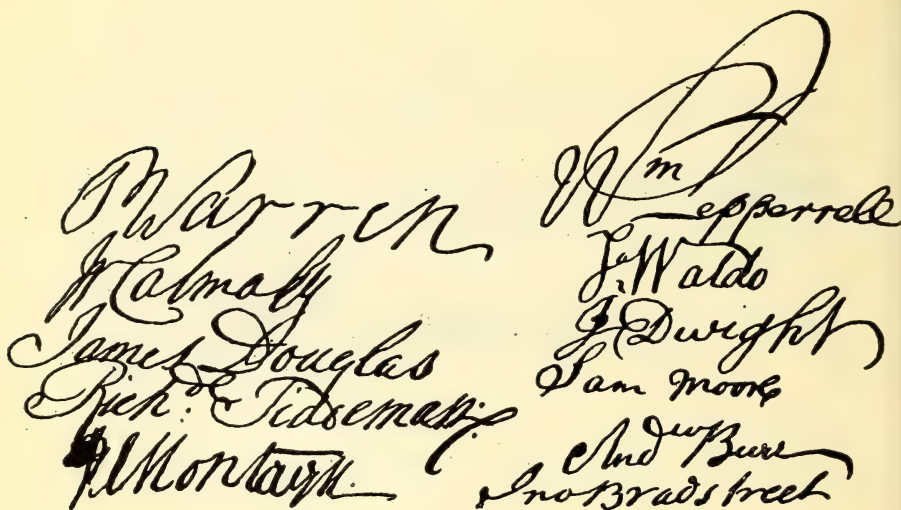 P Warren
W Calmady
James Douglas
Rich.d Tiddeman
J Montagu
Wm Pepperrell
S. Waldo
J Dwight
Sam Moore
Andw Burr
Jno Bradstreet